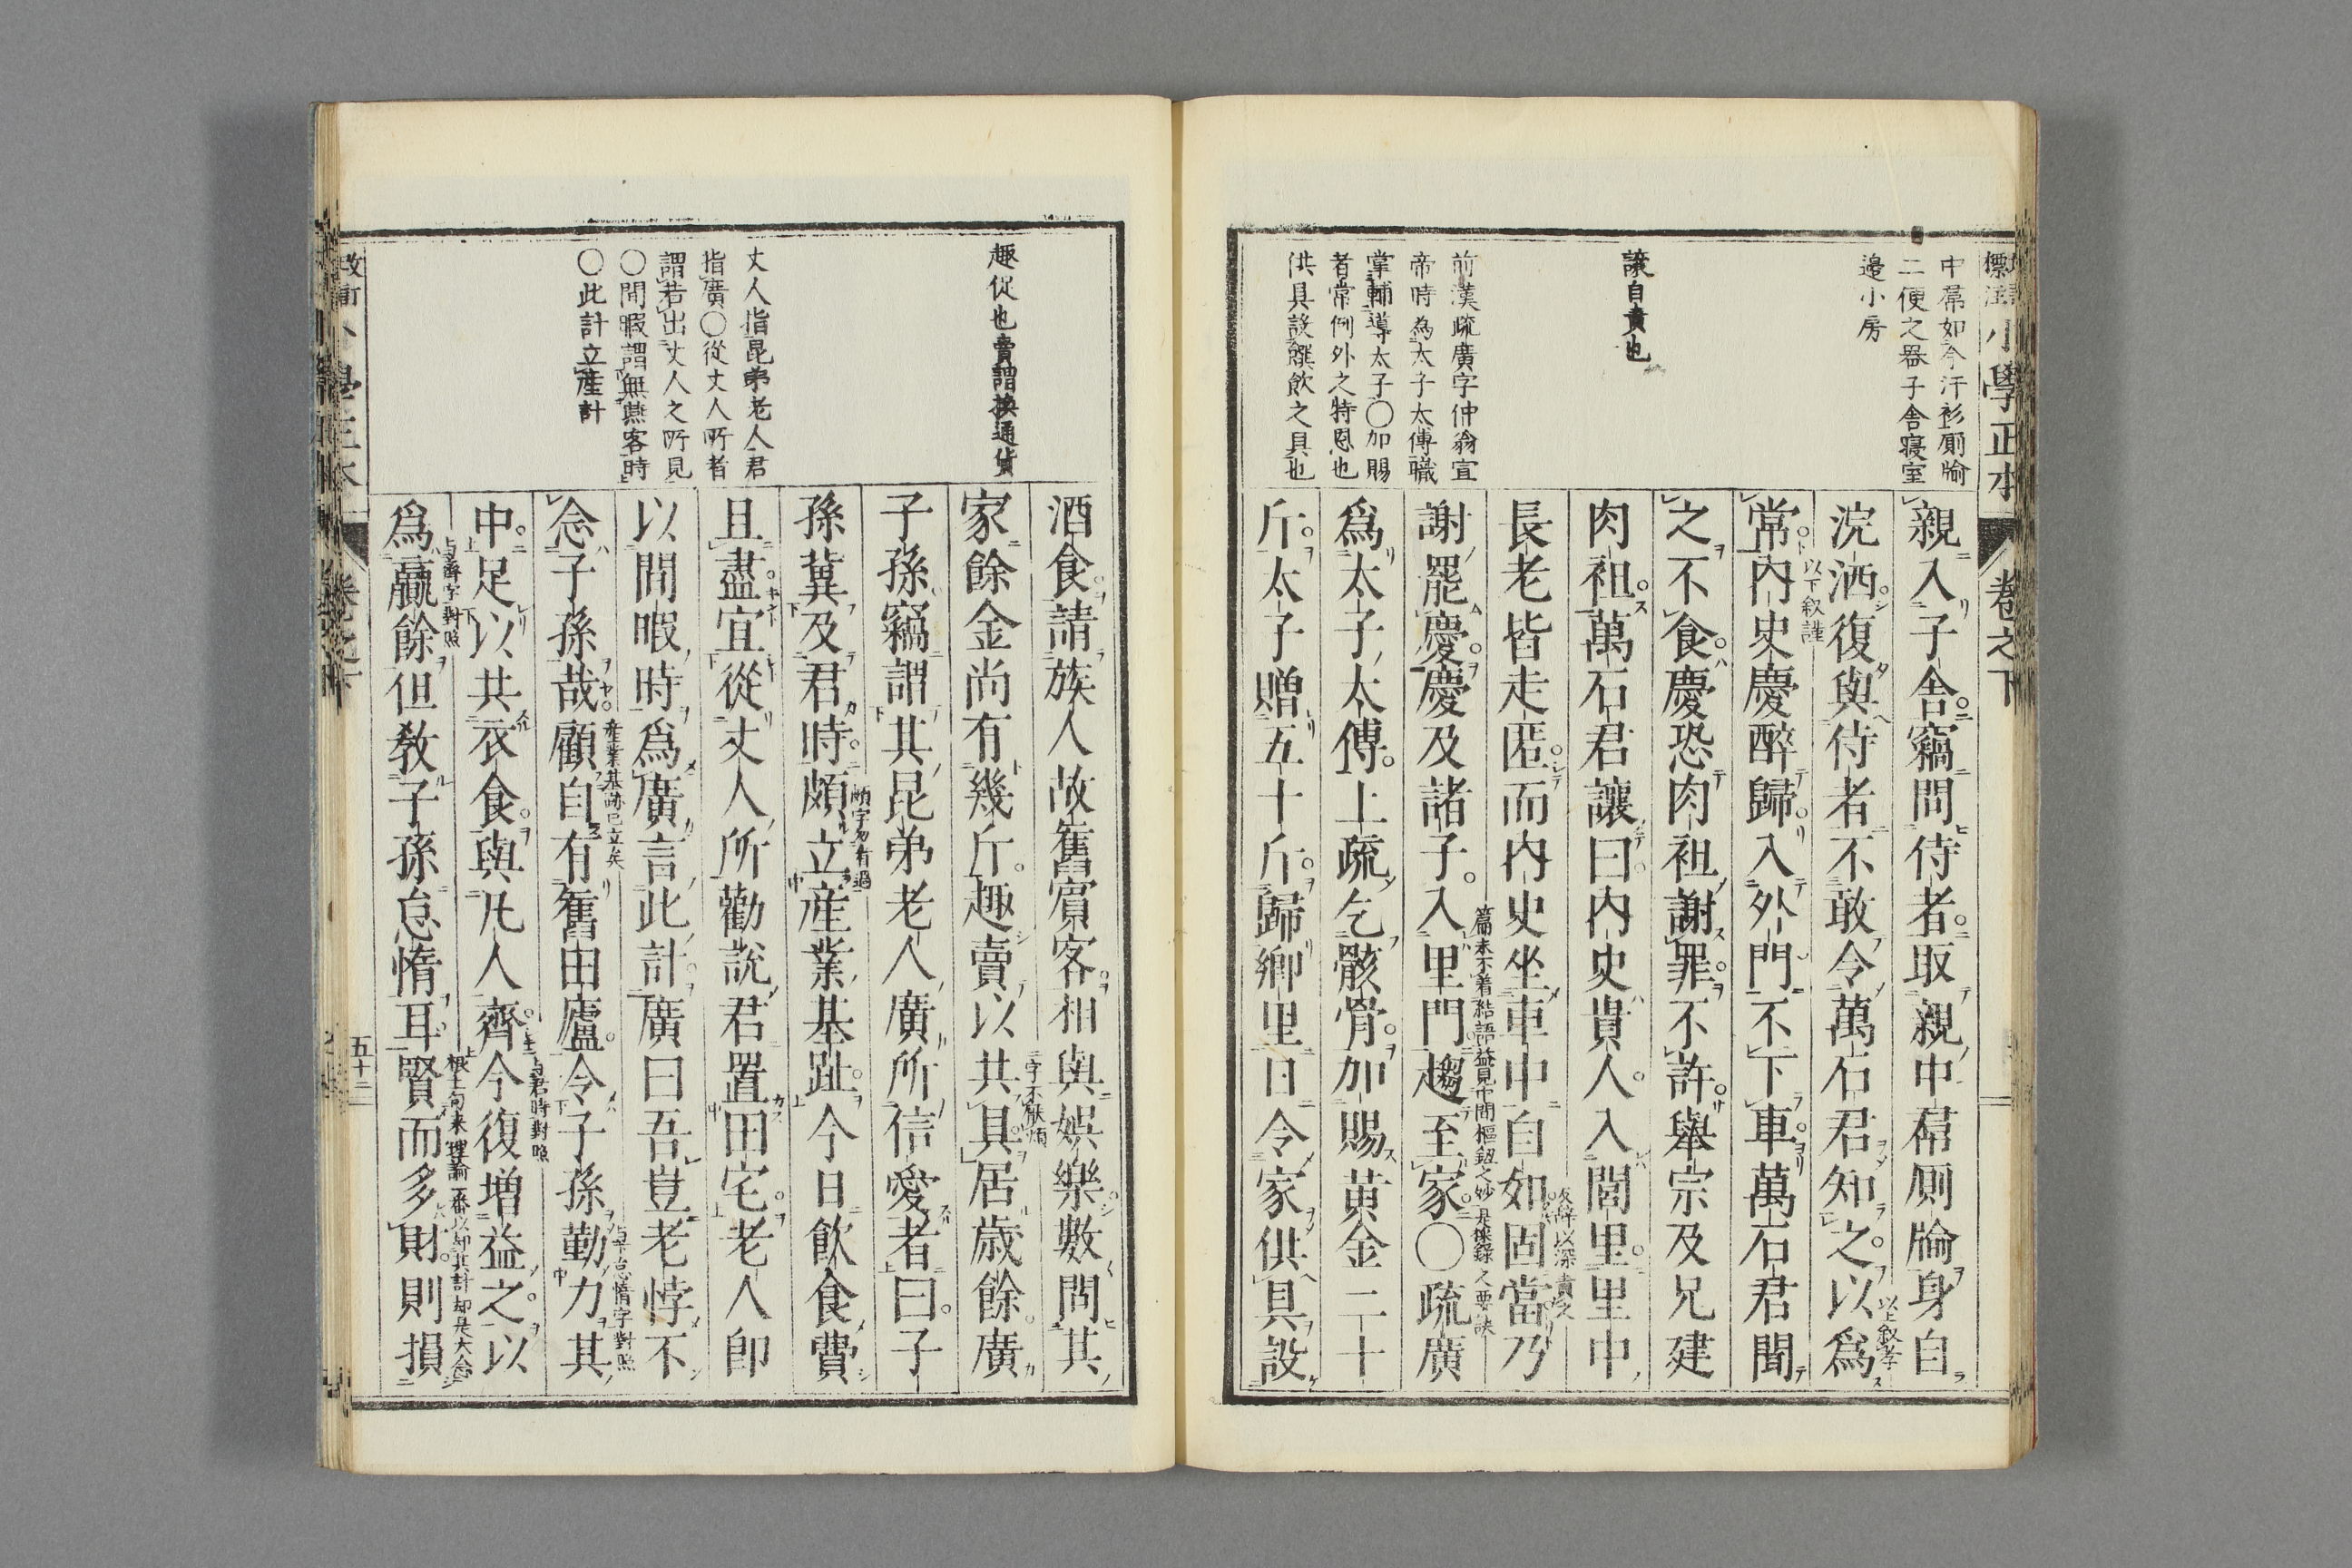 小學正本
卷之下
中帬如今汗衫厠牏
二便之器子舎寝室
邉小房
讓自責也
前漢疏廣字仲翁宣
帝時為太子太傅職
掌輔導太子〇加賜
者常例外之特恩也
供具設饌飲之具也
親入子舎竊問侍者取親中帬厠牏身自
浣洒復與侍者不敢令萬石君知之以爲
常內史慶醉歸入外門不下車萬石君聞
之不食慶恐肉袒謝罪不許舉宗及兄建
肉袒萬石君讓曰內史貴人入閭里里中
長老皆走匿而內史坐車中自如固當乃
謝罷慶慶及諸子入里門趨至家〇疏廣
爲太子太傅上疏乞骸骨加賜黃金二十
斤太子贈五十斤歸鄉里日令家供具設
以上叙孝
以下叙謹
篇末不着結語益見中間樞鈕之妙是操錄之要訣
趣促也賣謂換通貨
丈人指昆弟老人君
指廣〇從丈人所者
謂若出丈人之所見
〇閒暇謂無燕客時
〇此計立產計
酒食請族人故舊賓客相與娯樂數問其
家餘金尚有幾斤趣賣以共具居歳餘廣
子孫竊謂其昆弟老人廣所信愛者曰子
孫冀及君時頗立産業基趾今日飲食費
且盡宜從丈人所勸說君置田宅老人卽
以閒暇時爲廣言此計廣曰吾豈老悖不
念子孫哉顧自有舊田廬令子孫勤力其
中足以共衣食與凡人齊今復増益之以
爲贏餘但敎子孫怠惰耳賢而多財則損
產業基跡已立矣
與下怠惰字對照
與君時對照
與齊字對照
五十二